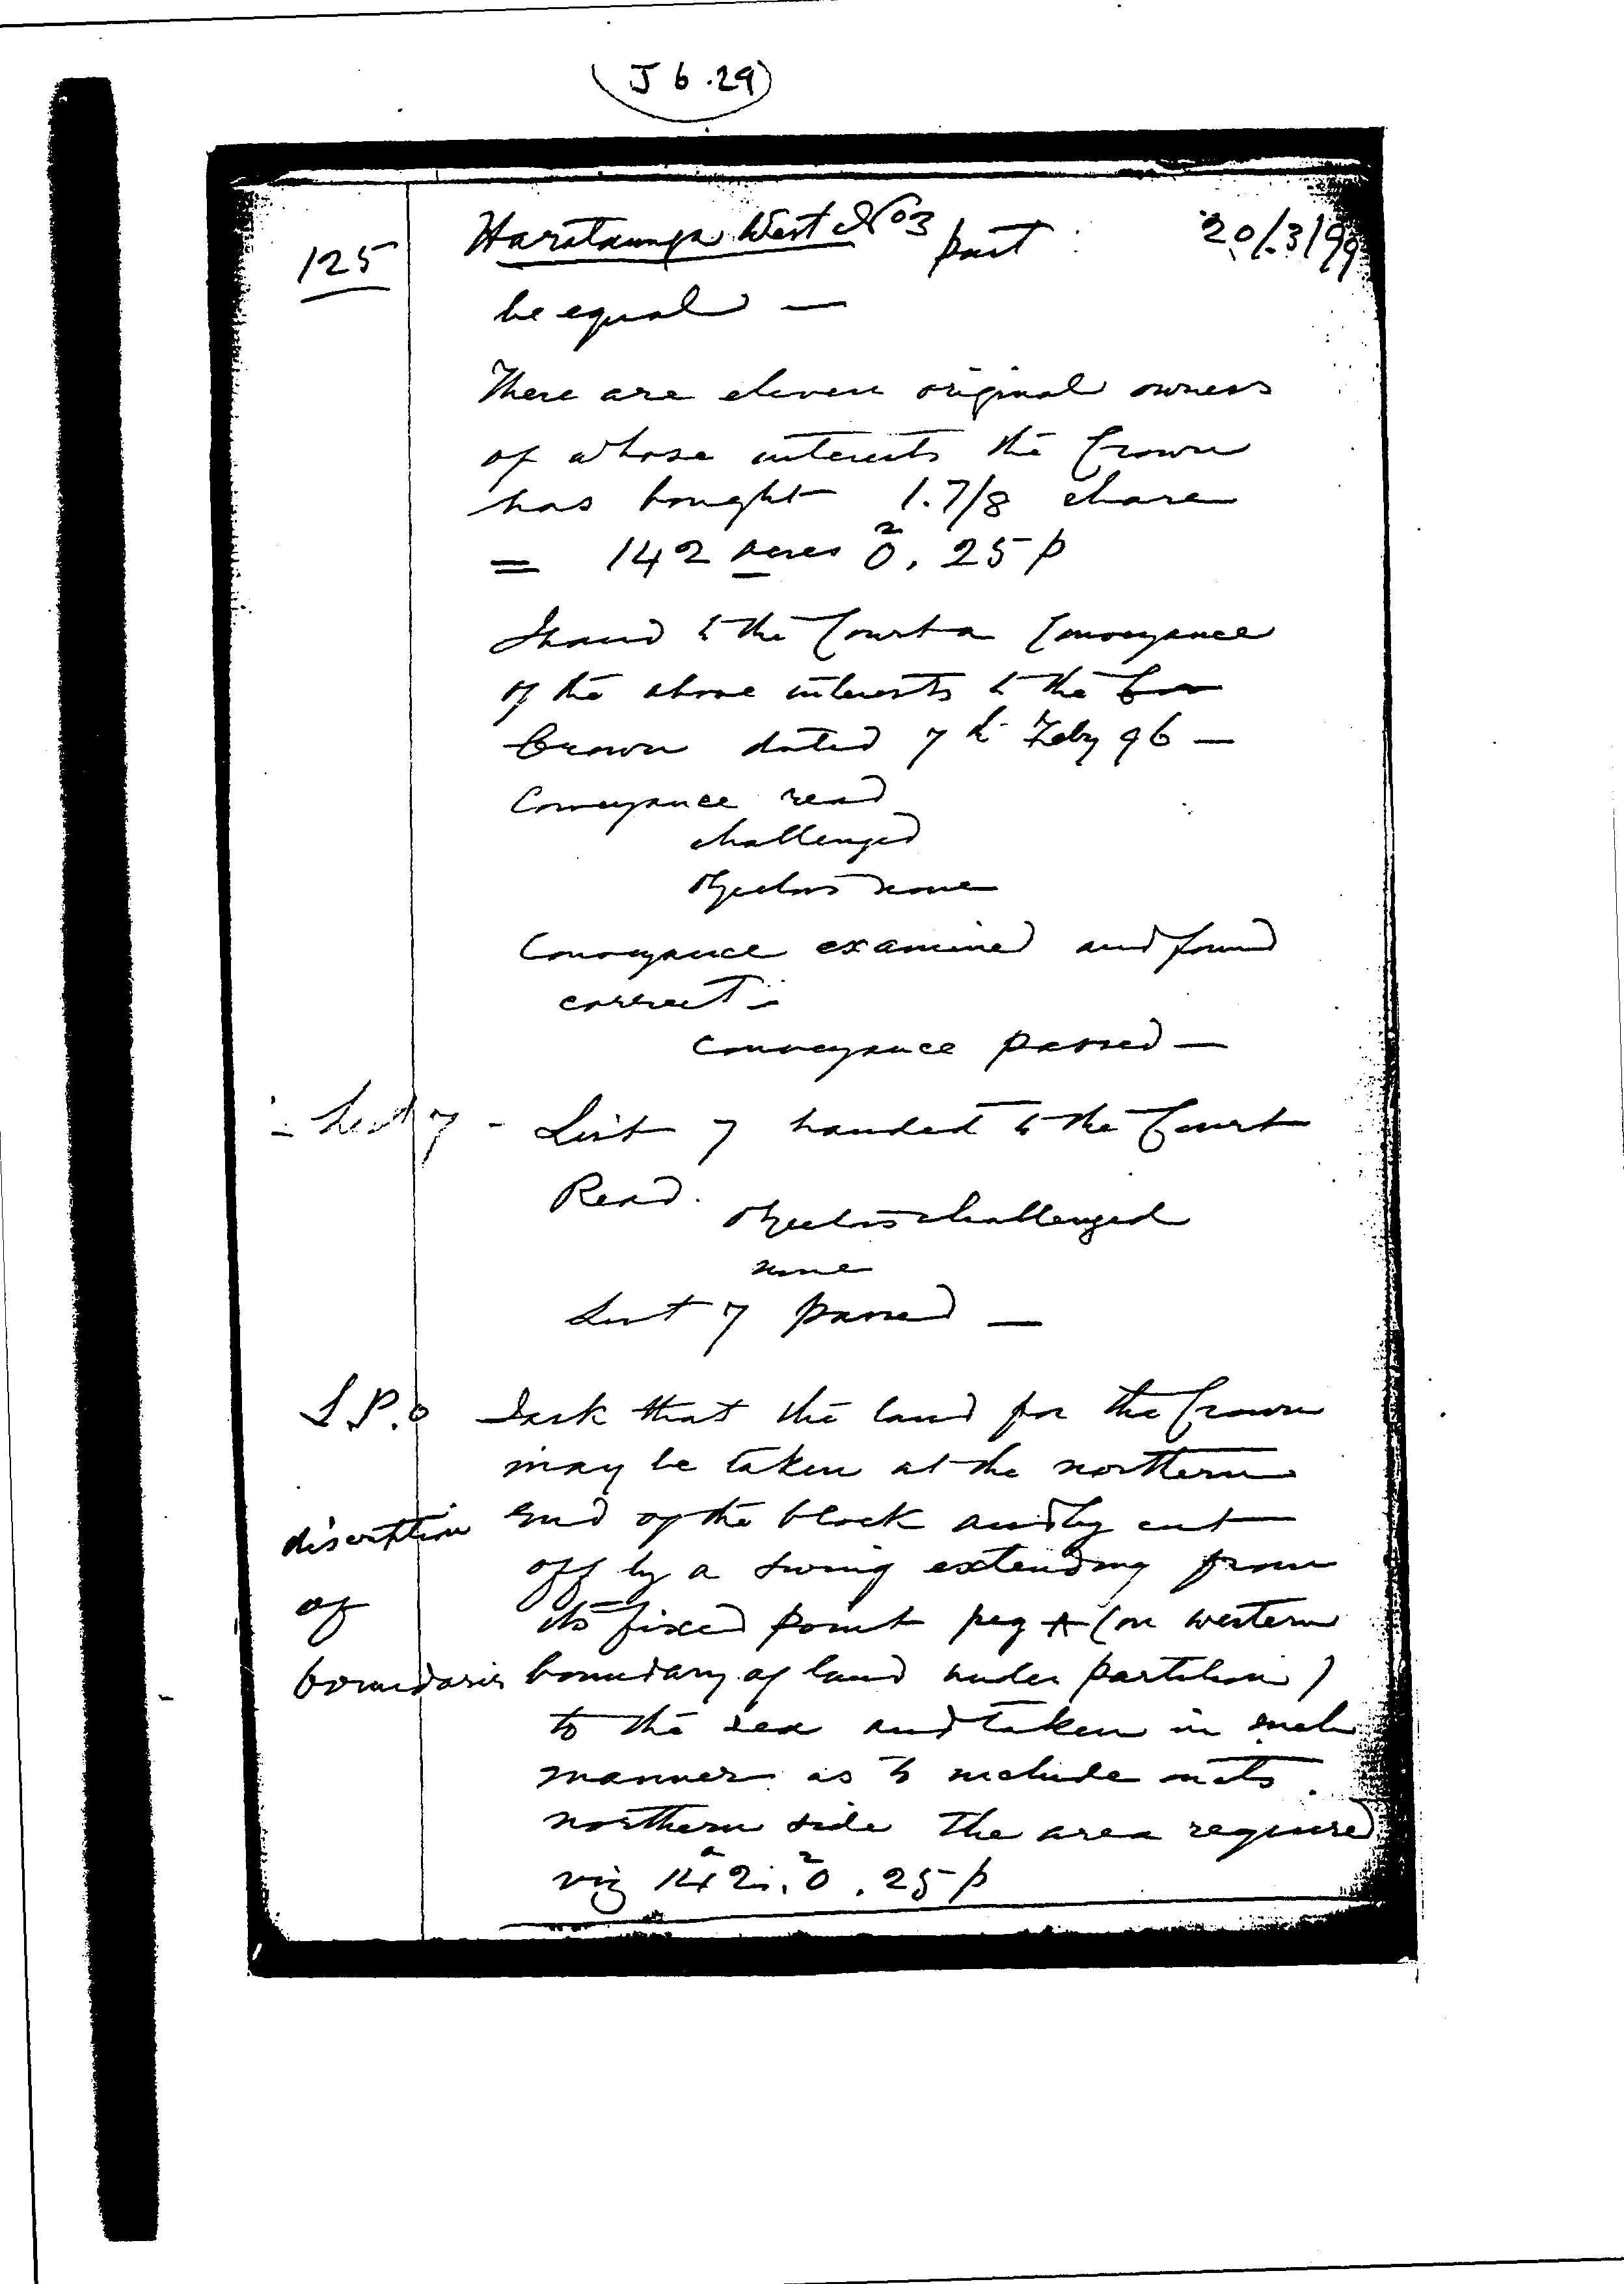 J 6.29
125 Harataunga West No3 part 20/3/99
be equal —
There are eleven original owners
of whose interests the Crown
has bought 1.7/8 share
= 142 acres 0. 25 p
I hand to the Court a Conveyance
of the above interests to the
Crown dated 7th Feby 96 —
Conveyance read
challenged
objectors none
Conveyance examined and found
correct —
Conveyance passed —
- List 7 - List 7 handed to the Court
Read.
objectors challenged
none
List 7 passed —
L.P.O I ask that the land for the Crown
may be taken at the northern
discription end of the block and by cut
of off by a swing extending from
its fixed point peg A (on western
boundaries boundary of land under partition)
to the sea and taken in such
manner as to include on its
northern side the area required
viz 142a. 0. 25 p